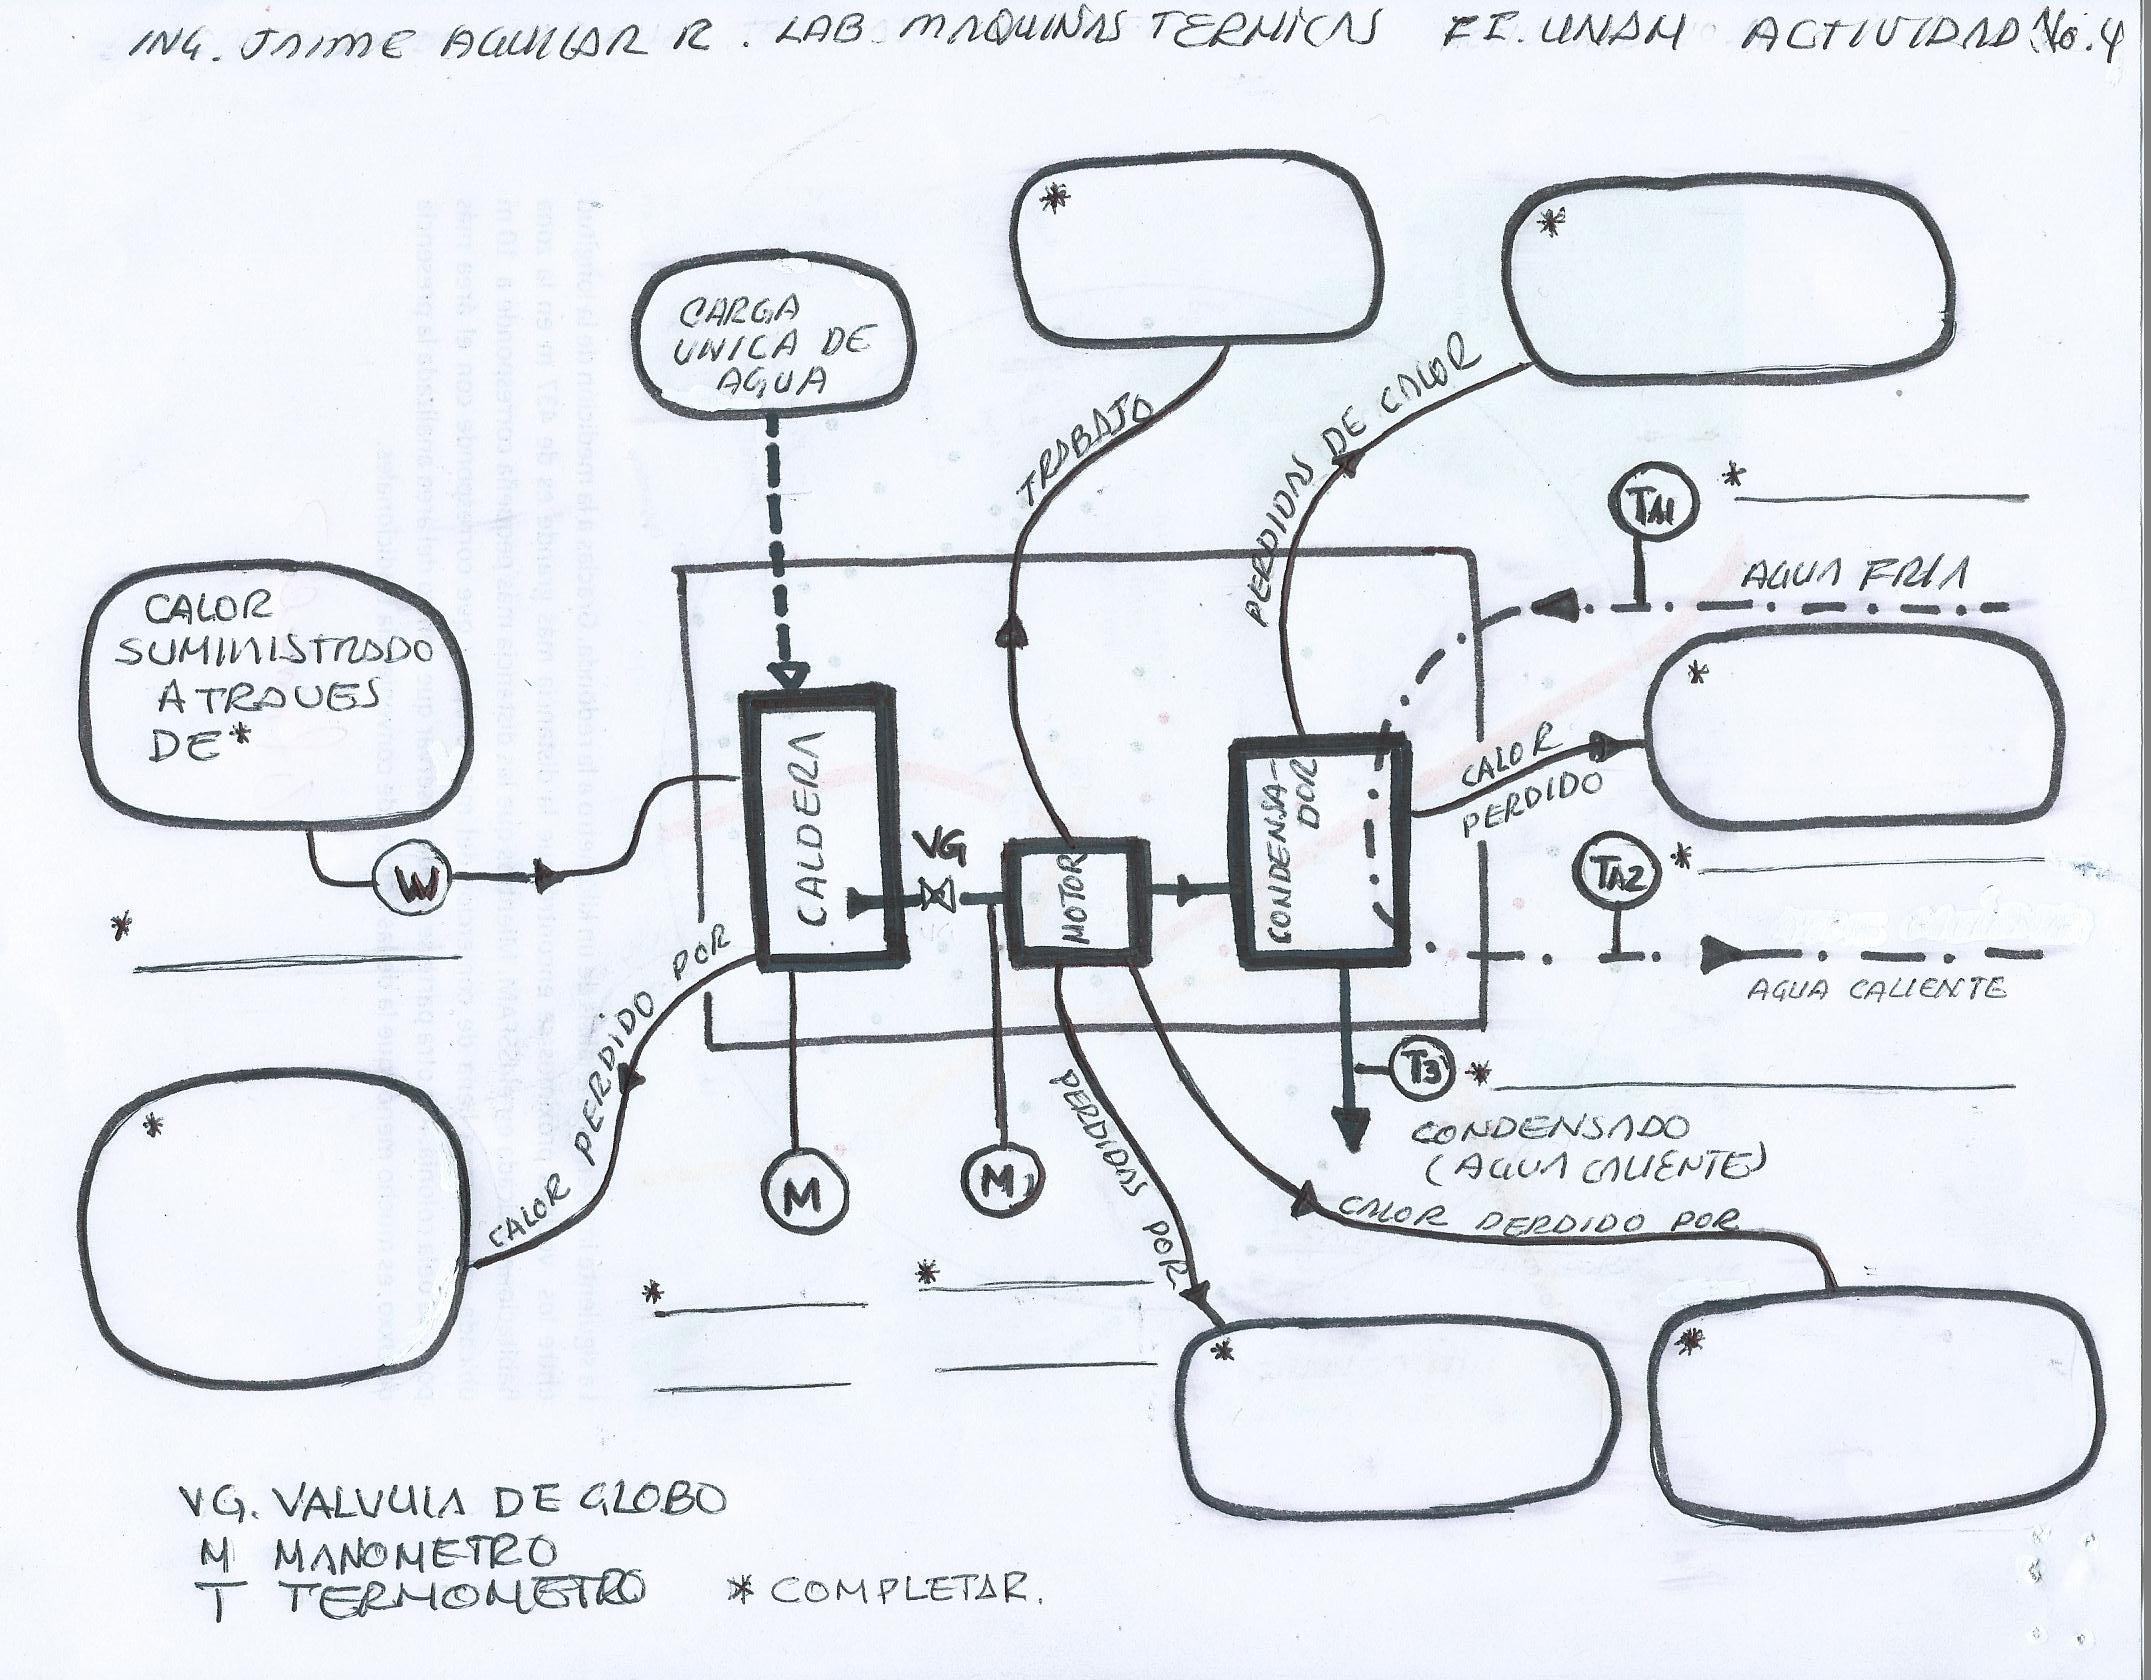 ING. JAIME AGUILAR R. LAB MAQUINAS TERMICAS FI. UNAM ACTIVIDAD No. 4
*
*
CARGA
UNICA DE
AGUA
TRABAJO
PERDIDAS DE CALOR
TA1 *
AGUA FRIA
CALOR
SUMINISTRADO
A TRAVES
DE*
*
CALDERA
VG
MOTOR
CONDENSA-
DOR
CALOR
PERDIDO
W
*
TA2 *
AGUA CALIENTE
CALOR PERDIDO POR
*
M
M1
T3 *
CONDENSADO
(AGUA CALIENTE)
PERDIDAS POR
CALOR PERDIDO POR
*
*
*
*
VG. VALVULA DE GLOBO
M MANOMETRO
T TERMOMETRO * COMPLETAR.